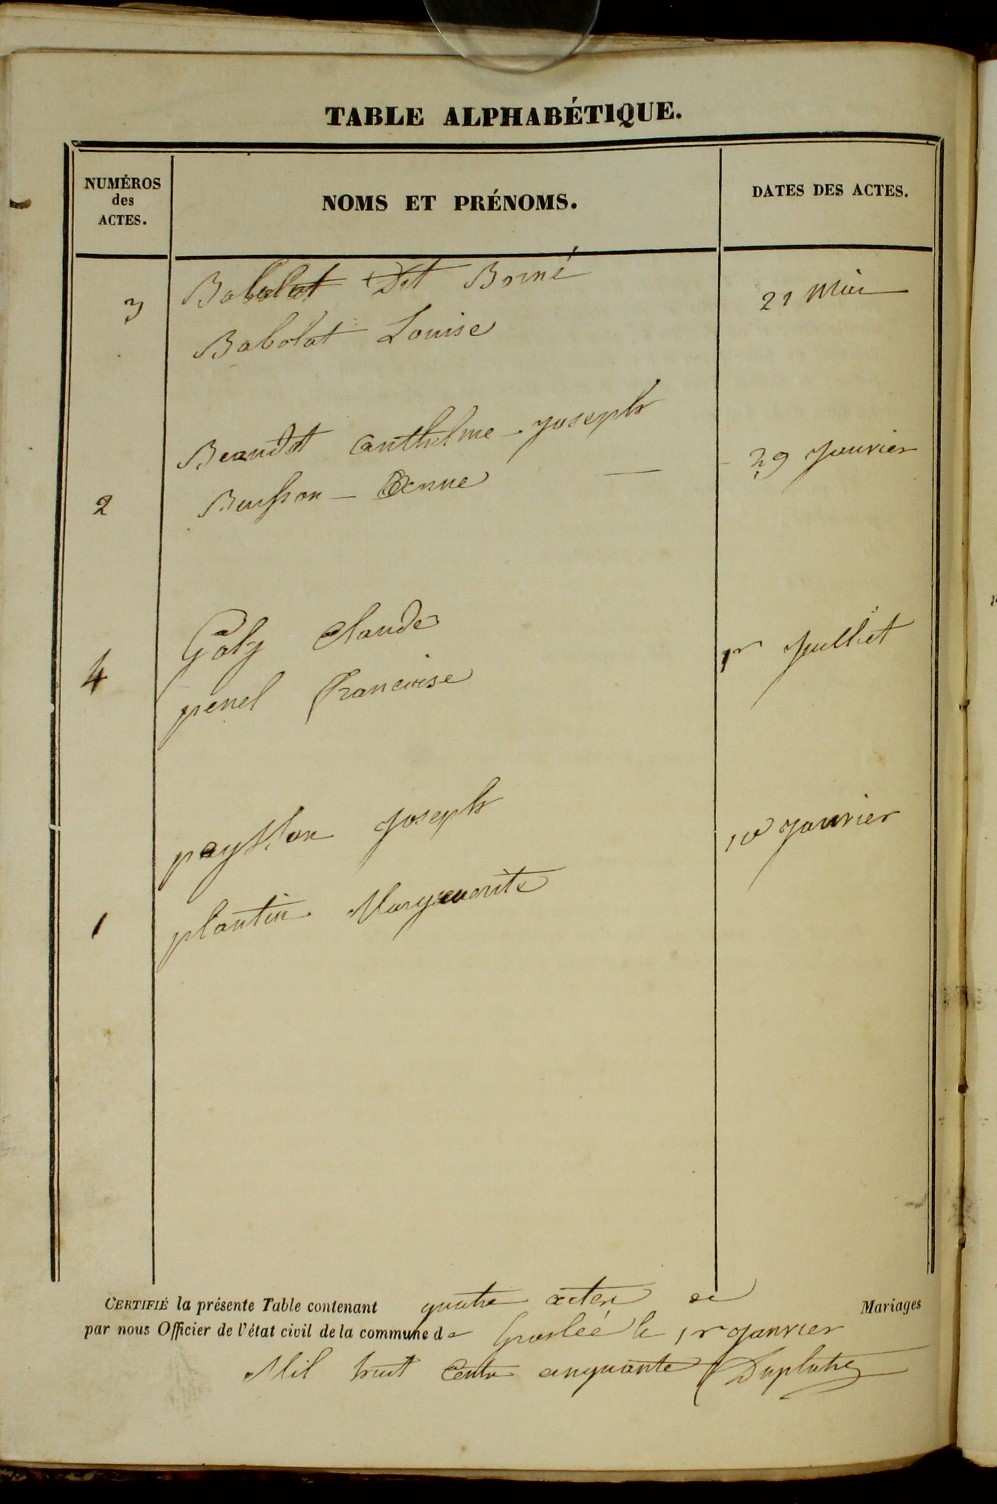 TABLE ALPHABÉTIQUE.
NUMÉROS des ACTES.
NOMS ET PRÉNOMS.
DATES DES ACTES.
3 Babolat Dit Briné 21 Mai
Babolat Louise
Beaudet anthelme joseph 29 Janvier
2 Buisson - Anne
Goly Claude 1er Juillet
4 penel francoise
payllon Joseph 10 Janvier
1 plantin Marguerite
CERTIFIÉ la présente Table contenant quatre actes de Mariages
par nous Officier de l'état civil de la commune de Groslée le 1er Janvier
Mil huit Cent cinquante Duplatre